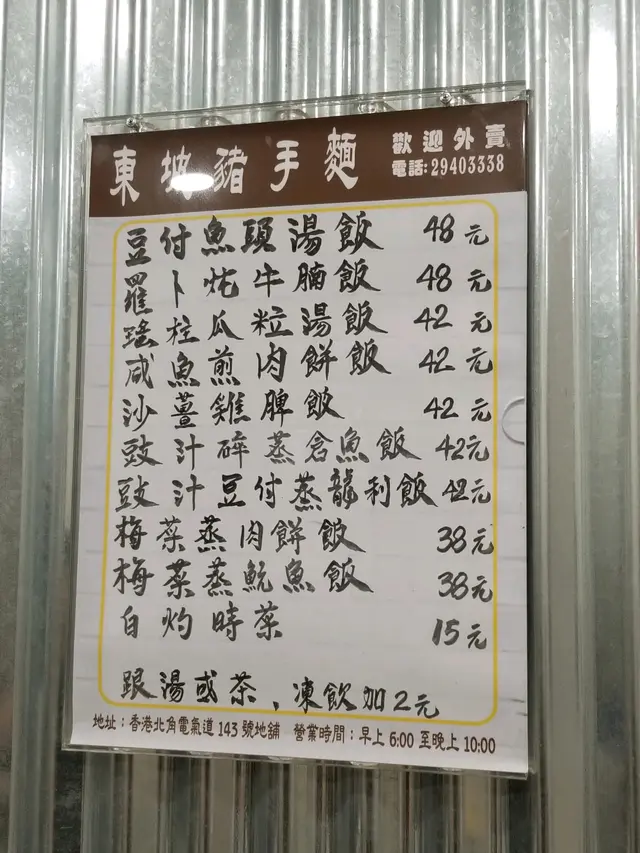 東坡豬手麵
歡迎外賣
電話:29403338
豆付魚頭湯飯 48元
羅卜炖牛腩飯 48元
瑤柱瓜粒湯飯 42元
咸魚煎肉餅飯 42元
沙薑雞脾飯 42元
豉汁碎蒸倉魚飯 42元
豉汁豆付蒸龍利飯 42元
梅菜蒸肉餅飯 38元
梅菜蒸鯇魚飯 38元
白灼時菜 15元
跟湯或茶、凍飲加2元
地址：香港北角電氣道 143 號地舖 營業時間：早上 6:00 至晚上 10:00